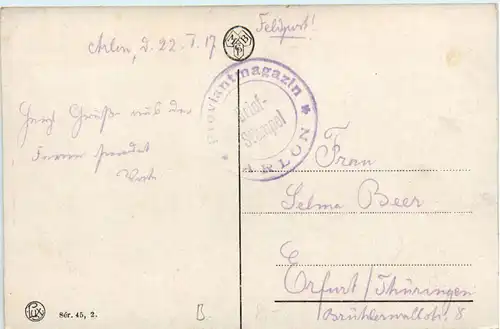 Arlon, d. 22. I. 17
Feldpost!
Proviantmagazin
Brief-
Stempel
* ARLON *
Herzl Grüße aus der
Ferne sendet
Frau
Selma Beer
Erfurt/Thüringen
Brühlerwallstr. 8
Lux
Sér. 45, 2.
B